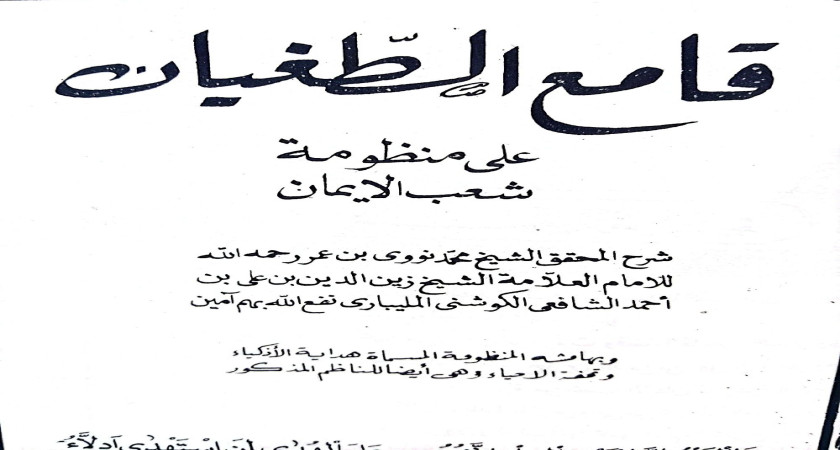 قامع الطّغيان
على منظومة
شعب الايمان
شرح المحقق الشيخ محمّد نووى بن عمر رحمه الله
للامام العلاّمة الشيخ زين الدين بن على بن
أحمد الشافعى الكوشنى المليبارى نفع الله بهم آمين
وبهامشه المنظومة المسماة هداية الأذكياء
وتحفة الاحياء وهى أيضا للناظم المذكور